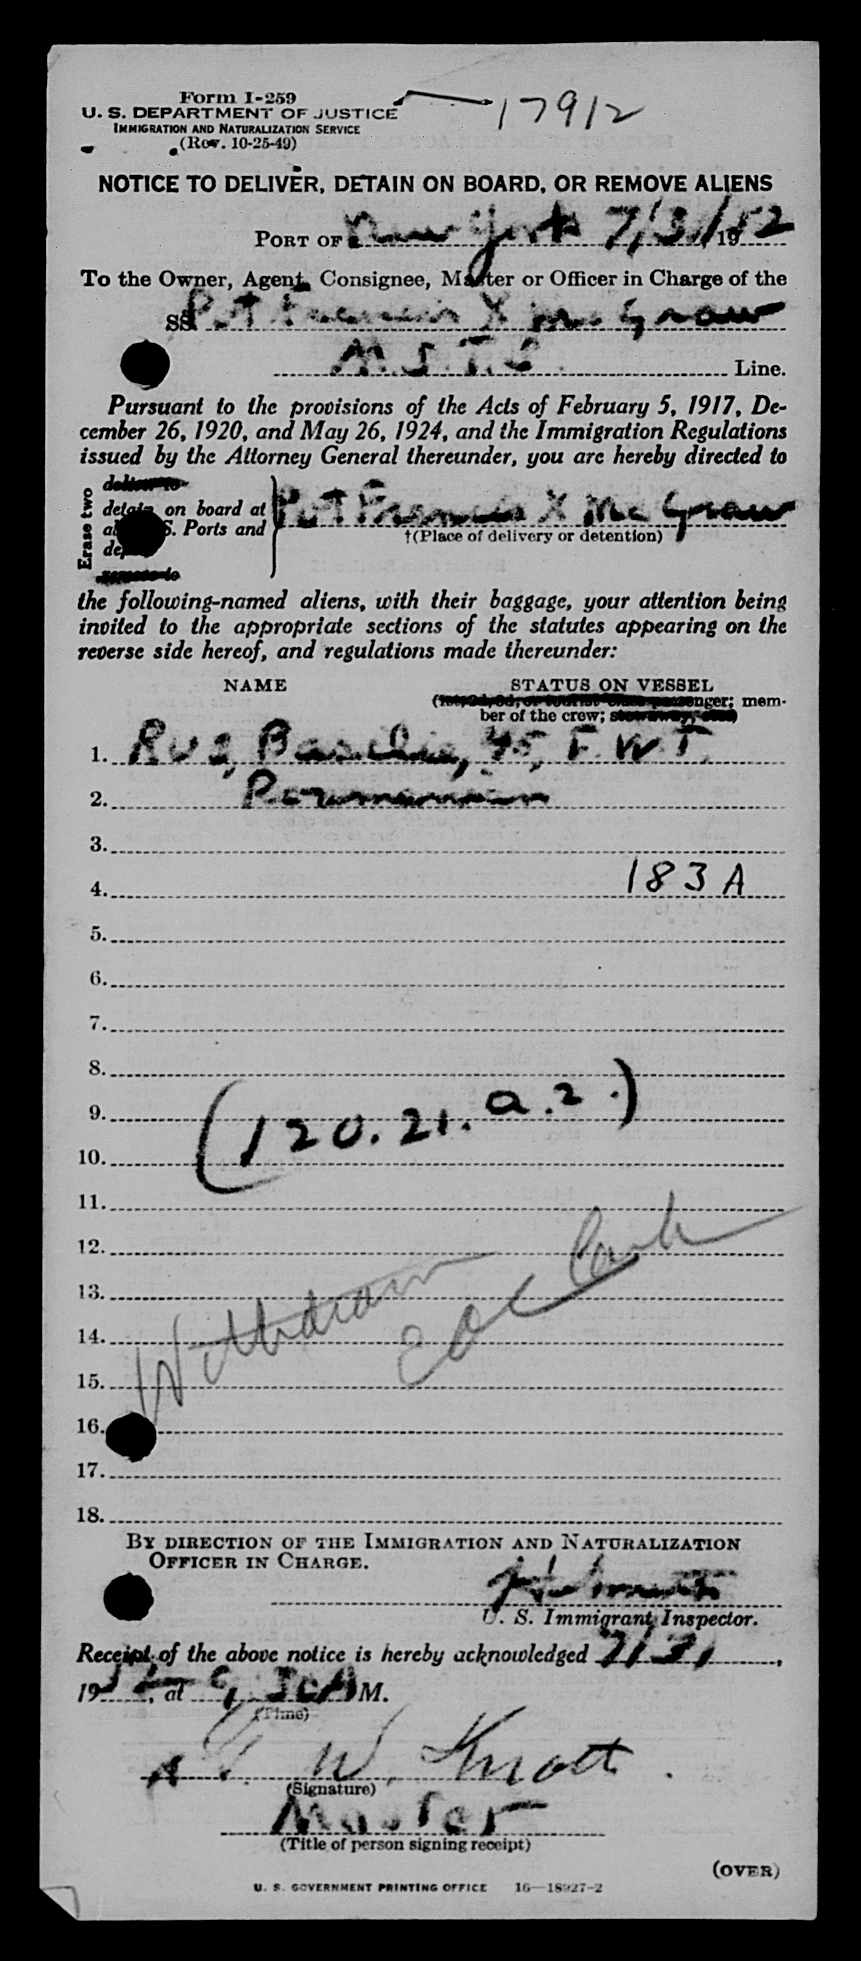 Form I-259
17912
U. S. DEPARTMENT OF JUSTICE
IMMIGRATION AND NATURALIZATION SERVICE
(Rev. 10-25-49)
NOTICE TO DELIVER, DETAIN ON BOARD, OR REMOVE ALIENS
PORT OF New York 7/31/1952
To the Owner, Agent, Consignee, Master or Officer in Charge of the
SS Pvt Francis X Mc Graw
M.S.T.S. Line.
Pursuant to the provisions of the Acts of February 5, 1917, De-
cember 26, 1920, and May 26, 1924, and the Immigration Regulations
issued by the Attorney General thereunder, you are hereby directed to
Erase two
deliver to
detain on board at
S. Ports and
Pvt Francis X Mc Graw
†(Place of delivery or detention)
remove to
the following-named aliens, with their baggage, your attention being
invited to the appropriate sections of the statutes appearing on the
reverse side hereof, and regulations made thereunder:
NAME STATUS ON VESSEL
(1st, 2d, 3d, or tourist class passenger; mem-
ber of the crew; stowaway, etc.)
1. Rus, Basilie, 45, F. W. T.
2. Roumanian
3.
4. 183 A
5.
6.
7.
8.
9.
(120.21.a.2.)
10.
11.
12.
13.
14. Withdrawn
15.
16.
17.
18.
BY DIRECTION OF THE IMMIGRATION AND NATURALIZATION
OFFICER IN CHARGE.
U. S. Immigrant Inspector.
Receipt of the above notice is hereby acknowledged 7/31,
1952, at 9, 30 A M.
(Time)
W. Knott.
(Signature)
Master
(Title of person signing receipt)
(OVER)
U. S. GOVERNMENT PRINTING OFFICE 16—18927-2